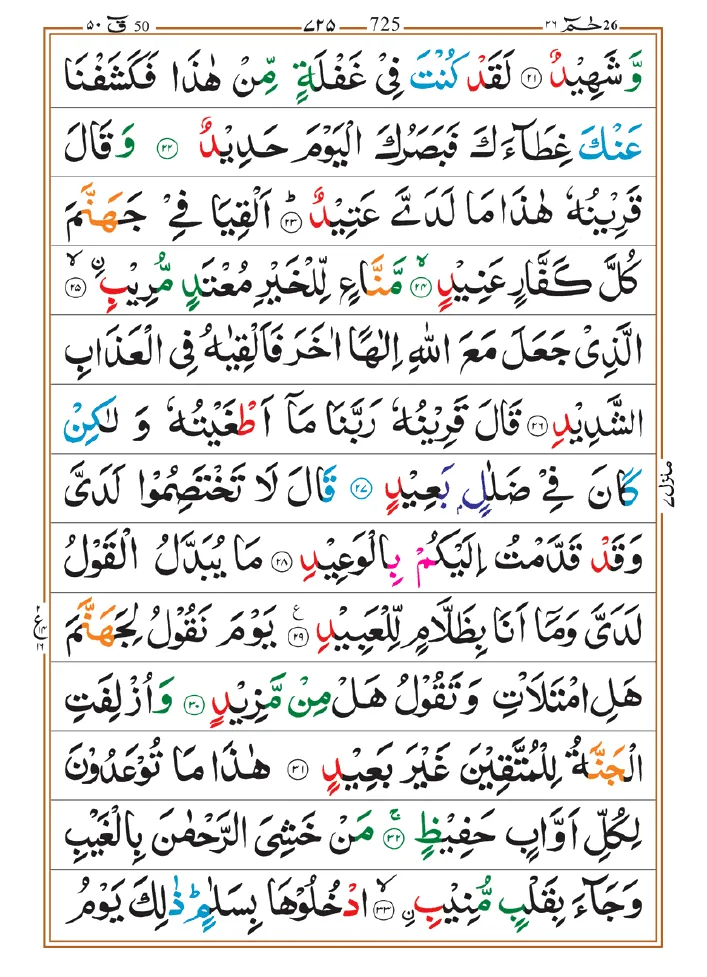 50 قٓ ۵۰
725 ۷۲۵
26 حٰمٓ ۲۶
وَّ شَهِيْدٌ ۲۱ لَقَدْ كُنْتَ فِيْ غَفْلَةٍ مِّنْ هٰذَا فَكَشَفْنَا
عَنْكَ غِطَآءَكَ فَبَصَرُكَ الْيَوْمَ حَدِيْدٌ ۲۲ وَ قَالَ
قَرِيْنُهٗ هٰذَا مَا لَدَيَّ عَتِيْدٌ ؕ ۲۳ اَلْقِيَا فِيْ جَهَنَّمَ
كُلَّ كَفَّارٍ عَنِيْدٍ ۙ ۲۴ مَّنَّاعٍ لِّلْخَيْرِ مُعْتَدٍ مُّرِيْبِ ۙ ۲۵ ن
الَّذِيْ جَعَلَ مَعَ اللّٰهِ اِلٰهًا اٰخَرَ فَاَلْقِيٰهُ فِي الْعَذَابِ
الشَّدِيْدِ ۲۶ قَالَ قَرِيْنُهٗ رَبَّنَا مَاۤ اَطْغَيْتُهٗ وَ لٰكِنْ
كَانَ فِيْ ضَلٰلٍۭ بَعِيْدٍ ۲۷ قَالَ لَا تَخْتَصِمُوْا لَدَيَّ
وَقَدْ قَدَّمْتُ اِلَيْكُمْ بِالْوَعِيْدِ ۲۸ مَا يُبَدَّلُ الْقَوْلُ
لَدَيَّ وَمَاۤ اَنَا بِظَلَّامٍ لِّلْعَبِيْدِ ۲۹ ع يَوْمَ نَقُوْلُ لِجَهَنَّمَ
هَلِ امْتَلَاْتِ وَ تَقُوْلُ هَلْ مِنْ مَّزِيْدٍ ۳۰ وَ اُزْلِفَتِ
الْجَنَّةُ لِلْمُتَّقِيْنَ غَيْرَ بَعِيْدٍ ۳۱ هٰذَا مَا تُوْعَدُوْنَ
لِكُلِّ اَوَّابٍ حَفِيْظٍ ۚ ۳۲ مَنْ خَشِيَ الرَّحْمٰنَ بِالْغَيْبِ
وَجَآءَ بِقَلْبٍ مُّنِيْبِ ۙ ۳۳ ن ادْخُلُوْهَا بِسَلٰمٍ ؕ ذٰلِكَ يَوْمُ
منزل ۷
۲
ع ۱۴
۱۶